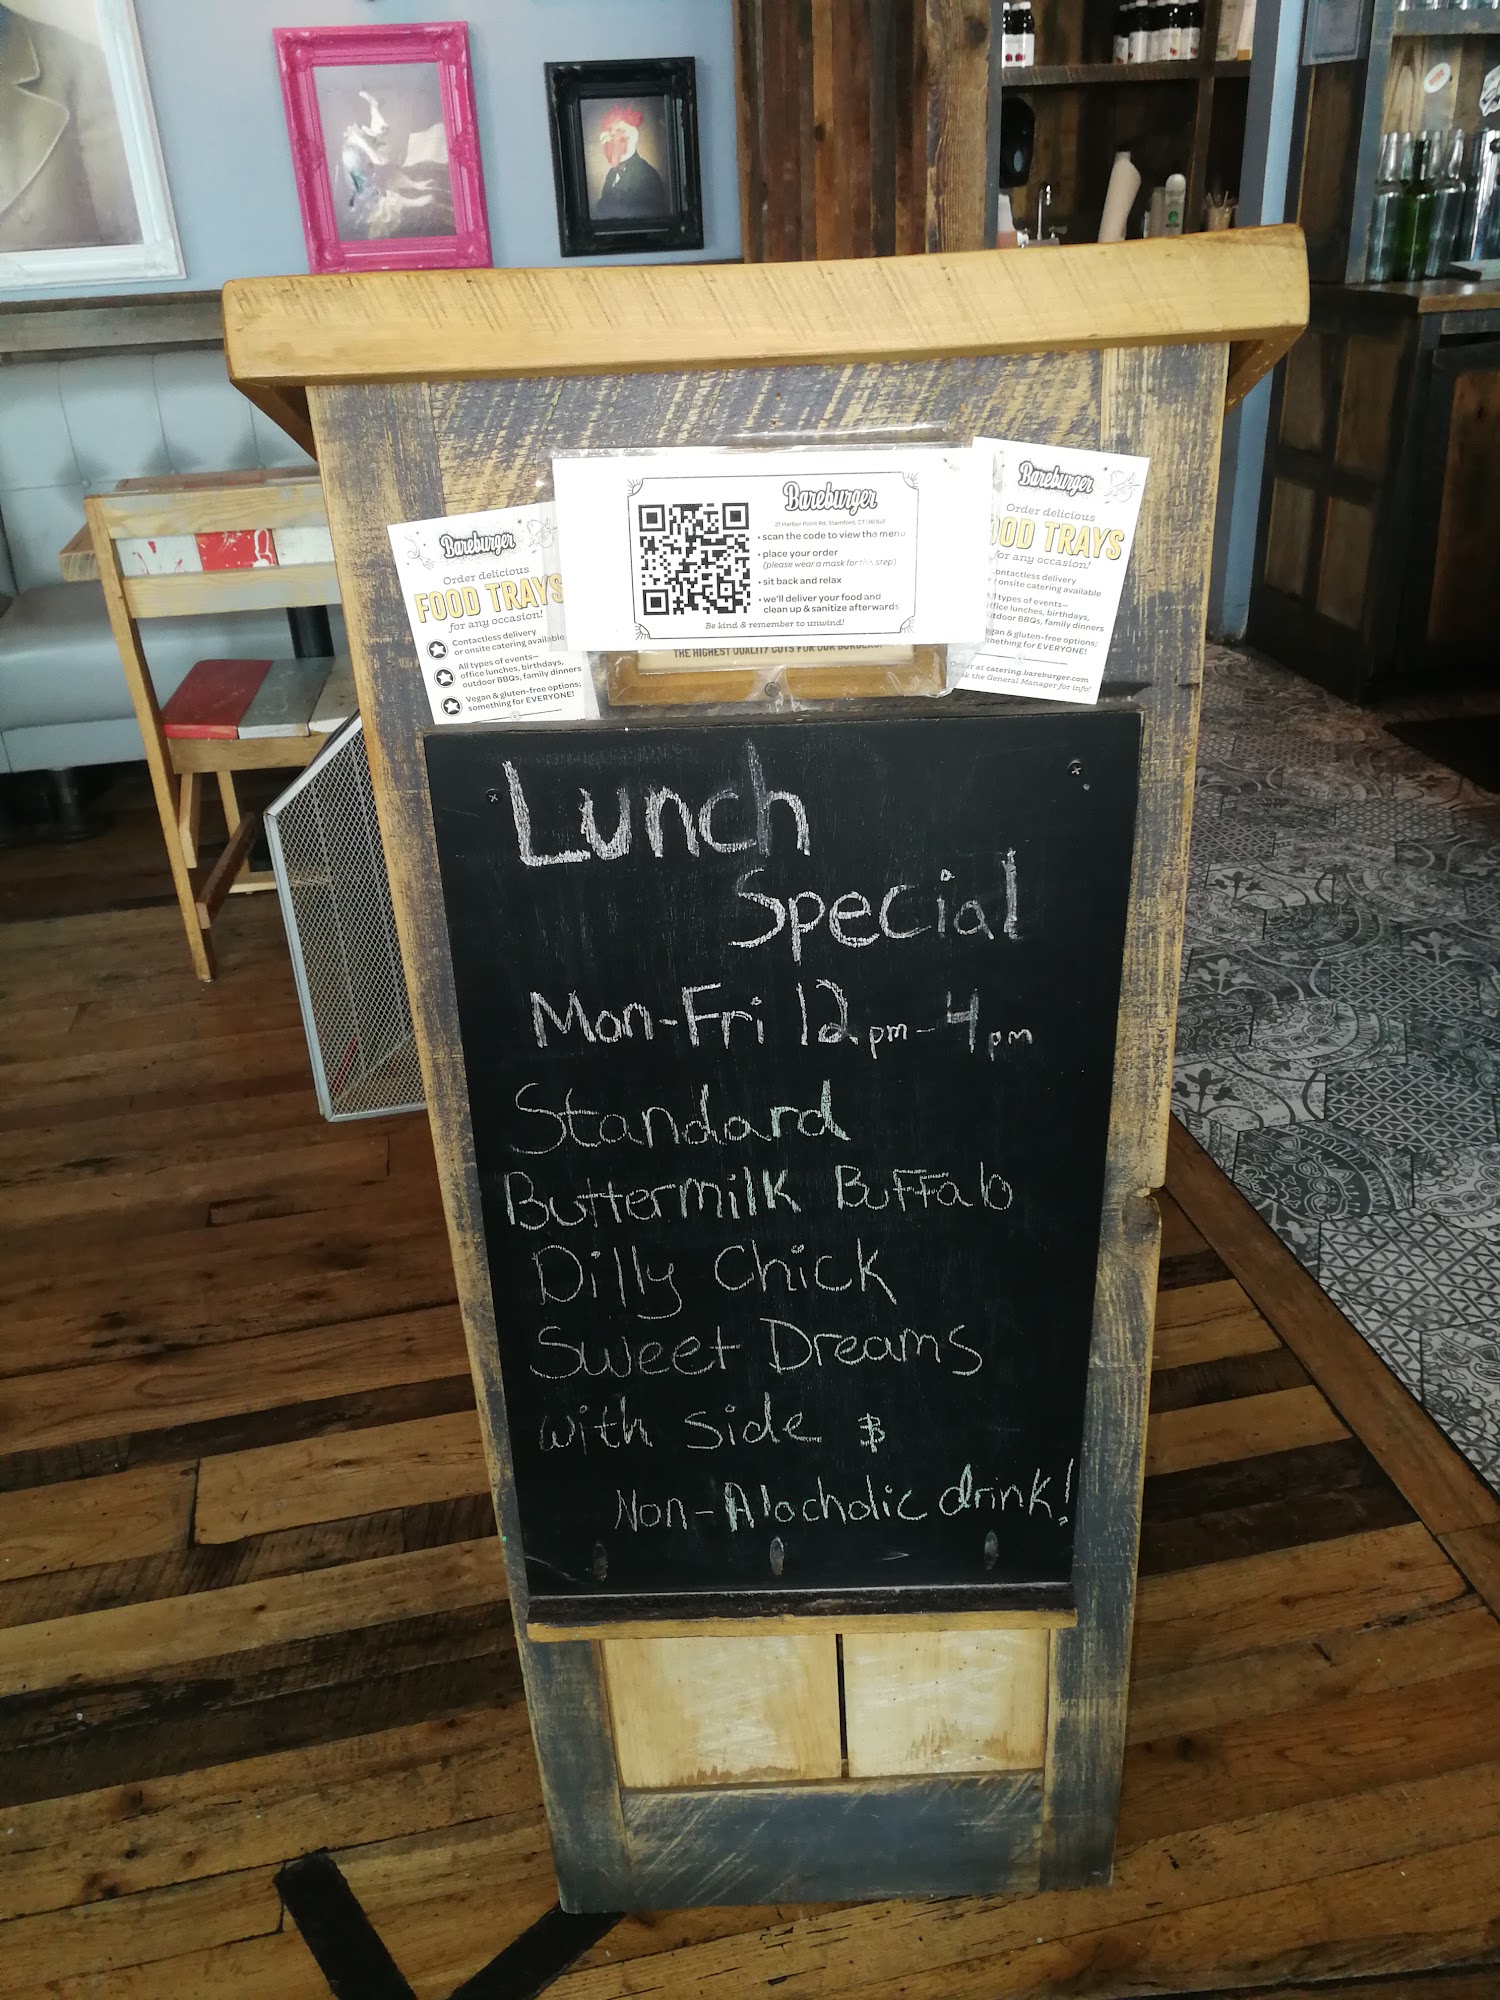 Bareburger
21 Harbor Point Rd. Stamford, CT
• scan the code to view the menu
• place your order
(please wear a mask for this step)
• sit back and relax
• we'll deliver your food and
clean up & sanitize afterwards
Be kind & remember to unwind!
THE HIGHEST QUALITY CUTS FOR OUR BURGERS.
Bareburger
Order delicious
FOOD TRAYS
for any occasion!
Contactless delivery
or onsite catering available
All types of events—
office lunches, birthdays,
outdoor BBQs, family dinners
Vegan & gluten-free options;
something for EVERYONE!
Bareburger
Order delicious
OOD TRAYS
for any occasion!
ontactless delivery
r onsite catering available
All types of events—
ffice lunches, birthdays,
utdoor BBQs, family dinners
egan & gluten-free options;
mething for EVERYONE!
Order at catering.bareburger.com
sk the General Manager for info!
Lunch
Special
Mon-Fri 12pm-4pm
Standard
Buttermilk Buffalo
Dilly Chick
Sweet Dreams
with side &
Non-Alocholic drink!